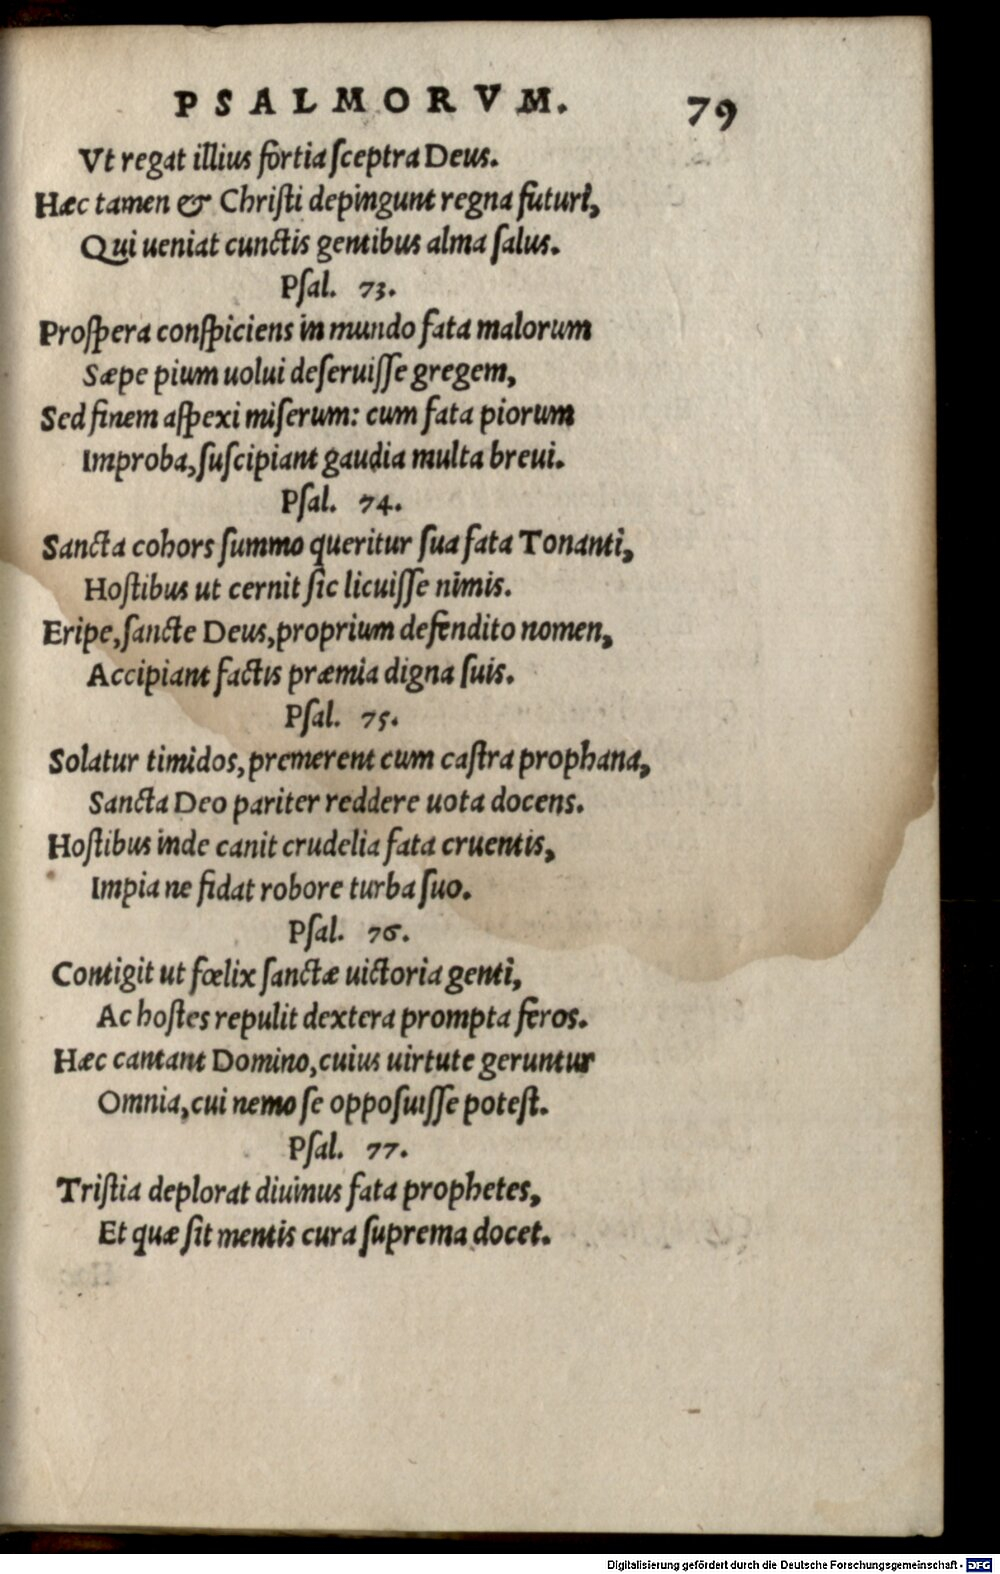 PSALMORVM. 79
Vt regat illius fortia ſceptra Deus.
Hæc tamen & Chriſti depingunt regna futuri,
Qui ueniat cunctis gentibus alma ſalus.
Pſal. 73.
Proſpera conſpiciens in mundo fata malorum
Sæpe pium uolui deſeruiſſe gregem,
Sed finem aſpexi miſerum: cum fata piorum
Improba, ſuſcipiant gaudia multa breui.
Pſal. 74.
Sancta cohors ſummo queritur ſua fata Tonanti,
Hoſtibus ut cernit ſic licuiſſe nimis.
Eripe, ſancte Deus, proprium defendito nomen,
Accipiant factis præmia digna ſuis.
Pſal. 75.
Solatur timidos, premerent cum caſtra prophana,
Sancta Deo pariter reddere uota docens.
Hoſtibus inde canit crudelia fata cruentis,
Impia ne fidat robore turba ſuo.
Pſal. 76.
Contigit ut fœlix ſanctæ uictoria genti,
Ac hoſtes repulit dextera prompta feros.
Hæc cantant Domino, cuius uirtute geruntur
Omnia, cui nemo ſe oppoſuiſſe poteſt.
Pſal. 77.
Triſtia deplorat diuinus fata prophetes,
Et quæ ſit mentis cura ſuprema docet.
Digitalisierung gefördert durch die Deutsche Forschungsgemeinschaft - DFG